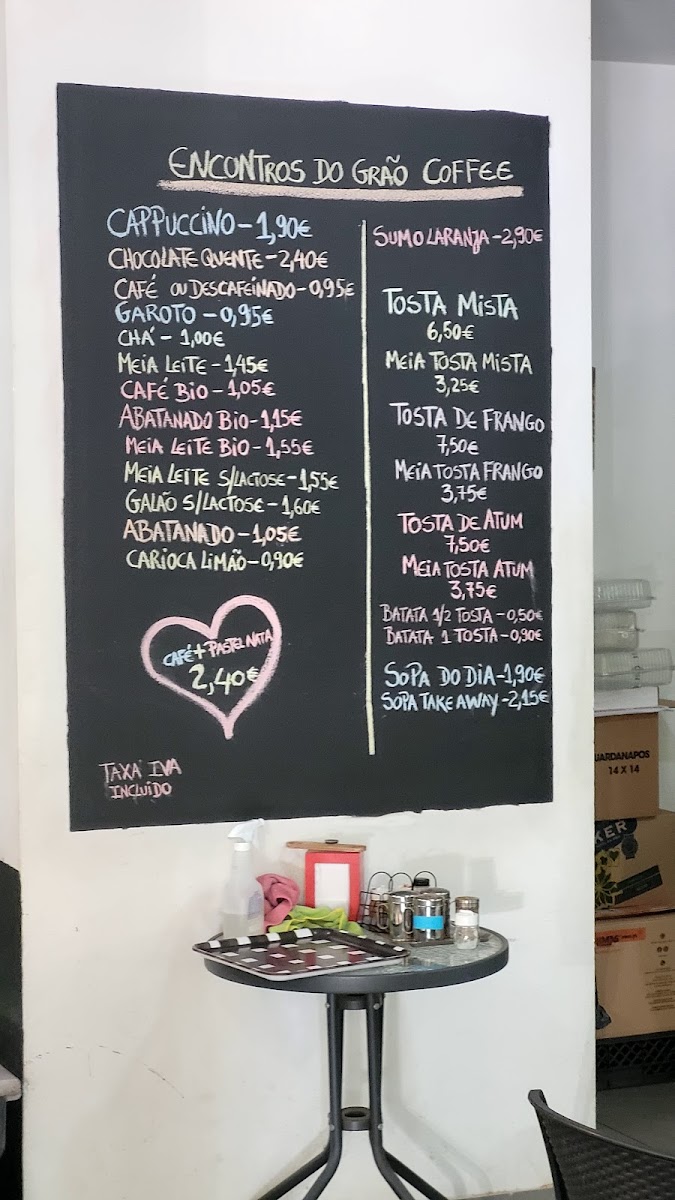 ENCONTROS DO GRÃO COFFEE
CAPPUCCINO - 1,90€
CHOCOLATE QUENTE - 2,40€
CAFÉ OU DESCAFEINADO - 0,95€
GAROTO - 0,95€
CHÁ - 1,00€
MEIA LEITE - 1,45€
CAFÉ BIO - 1,05€
ABATANADO BIO - 1,15€
MEIA LEITE BIO - 1,55€
MEIA LEITE S/LACTOSE - 1,55€
GALÃO S/LACTOSE - 1,60€
ABATANADO - 1,05€
CARIOCA LIMÃO - 0,90€
CAFÉ + PASTEL NATA
2,40€
TAXA IVA
INCLUÍDO
SUMO LARANJA - 2,90€
TOSTA MISTA
6,50€
MEIA TOSTA MISTA
3,25€
TOSTA DE FRANGO
7,50€
MEIA TOSTA FRANGO
3,75€
TOSTA DE ATUM
7,50€
MEIA TOSTA ATUM
3,75€
BATATA 1/2 TOSTA - 0,50€
BATATA 1 TOSTA - 0,90€
SOPA DO DIA - 1,90€
SOPA TAKE AWAY - 2,15€
UARDANAPOS
14 X 14
KER